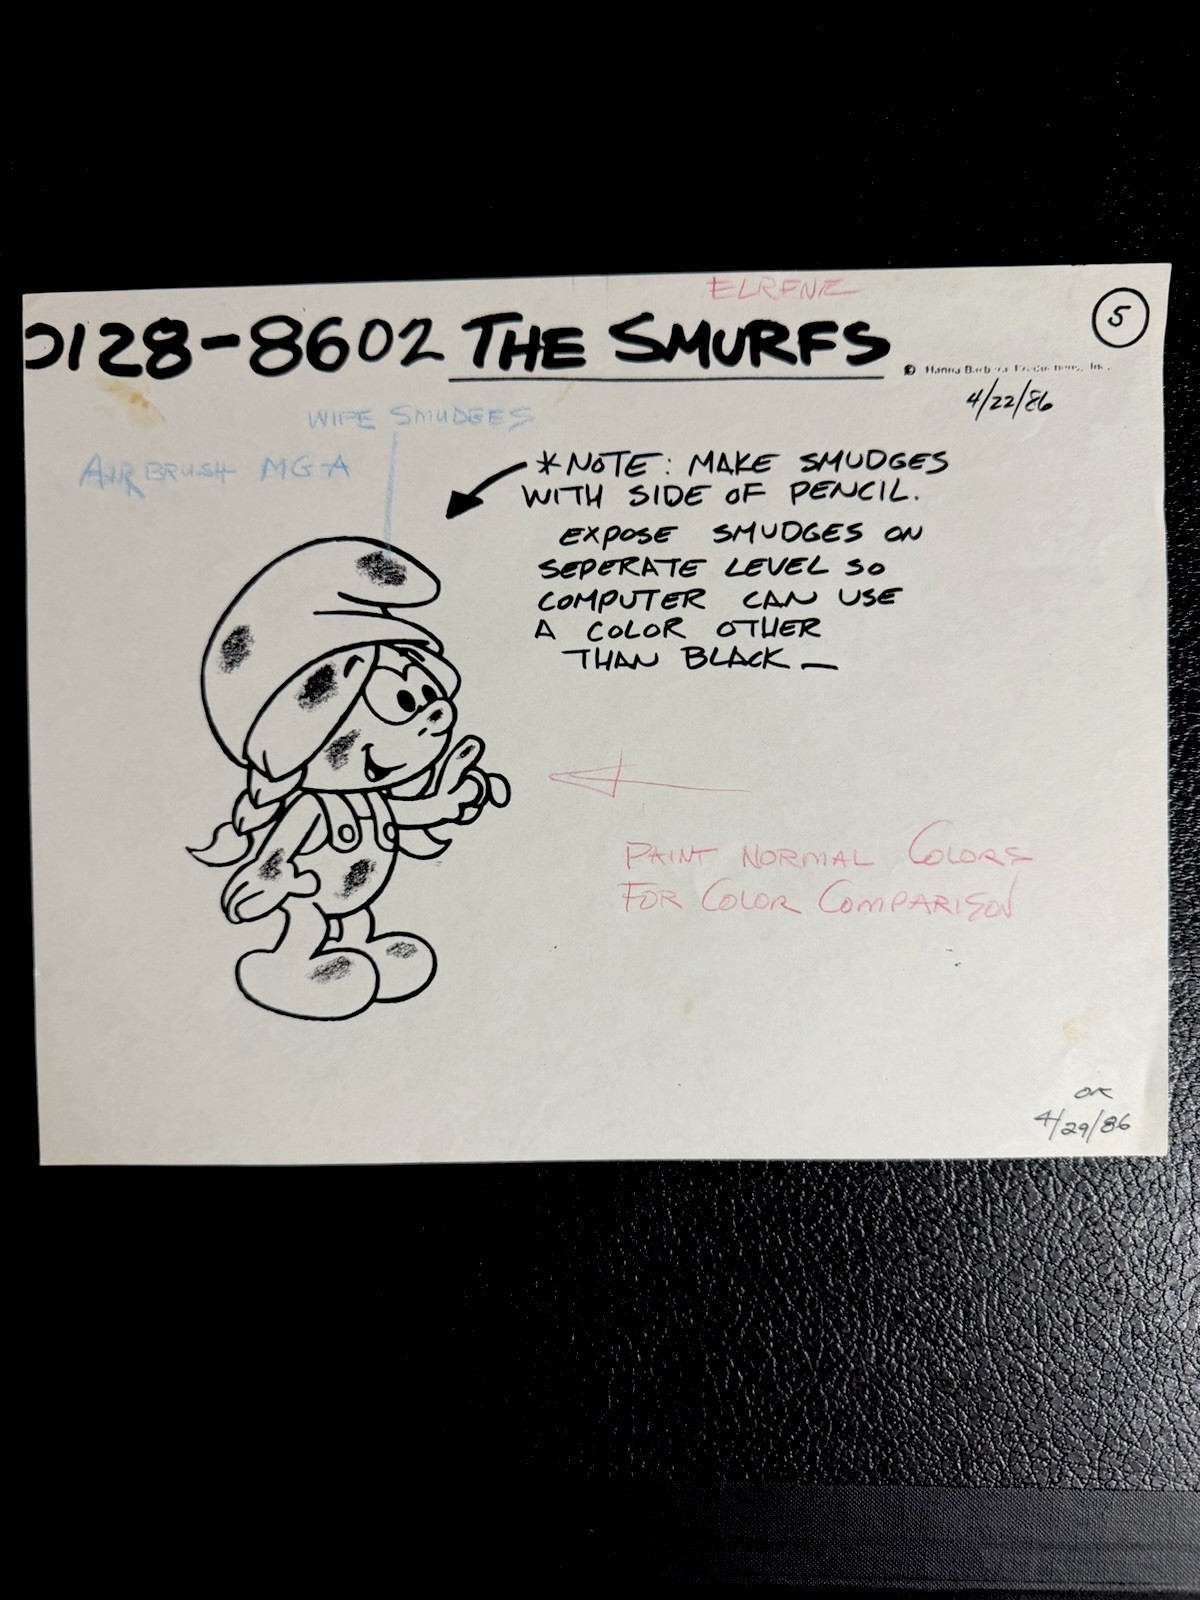 ELRENE
0128-8602 THE SMURFS
5
© Hanna Barbera Productions, Inc.
4/22/86
WIPE SMUDGES
AIRBRUSH MG-A
*NOTE: MAKE SMUDGES
WITH SIDE OF PENCIL.
EXPOSE SMUDGES ON
SEPERATE LEVEL SO
COMPUTER CAN USE
A COLOR OTHER
THAN BLACK —
PAINT NORMAL COLORS
FOR COLOR COMPARISON
OK
4/29/86